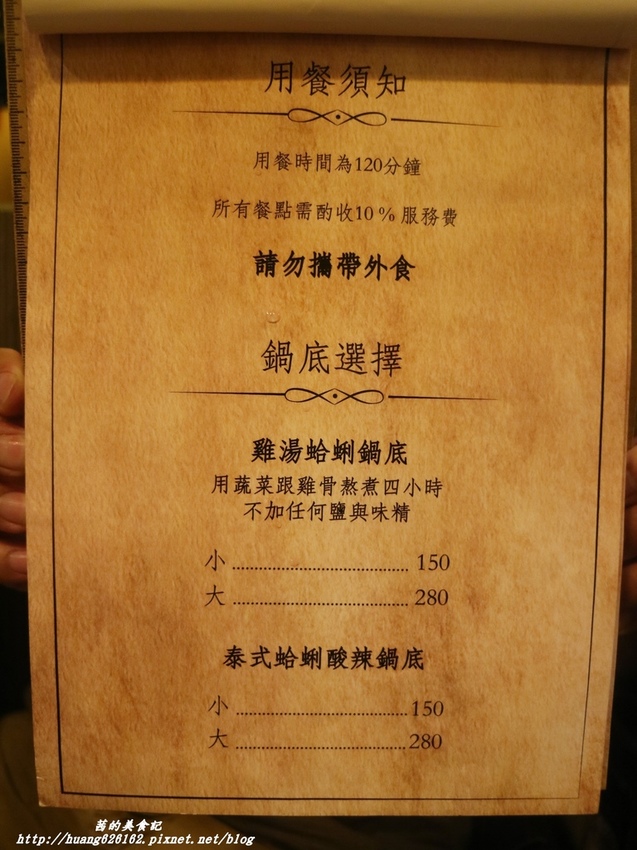 用餐須知
用餐時間為120分鐘
所有餐點需酌收10%服務費
請勿攜帶外食
鍋底選擇
雞湯蛤蜊鍋底
用蔬菜跟雞骨熬煮四小時
不加任何鹽與味精
小 ................................ 150
大 ................................ 280
泰式蛤蜊酸辣鍋底
小 ................................ 150
大 ................................ 280
茜的美食記
http://huang626162.pixnet.net/blog